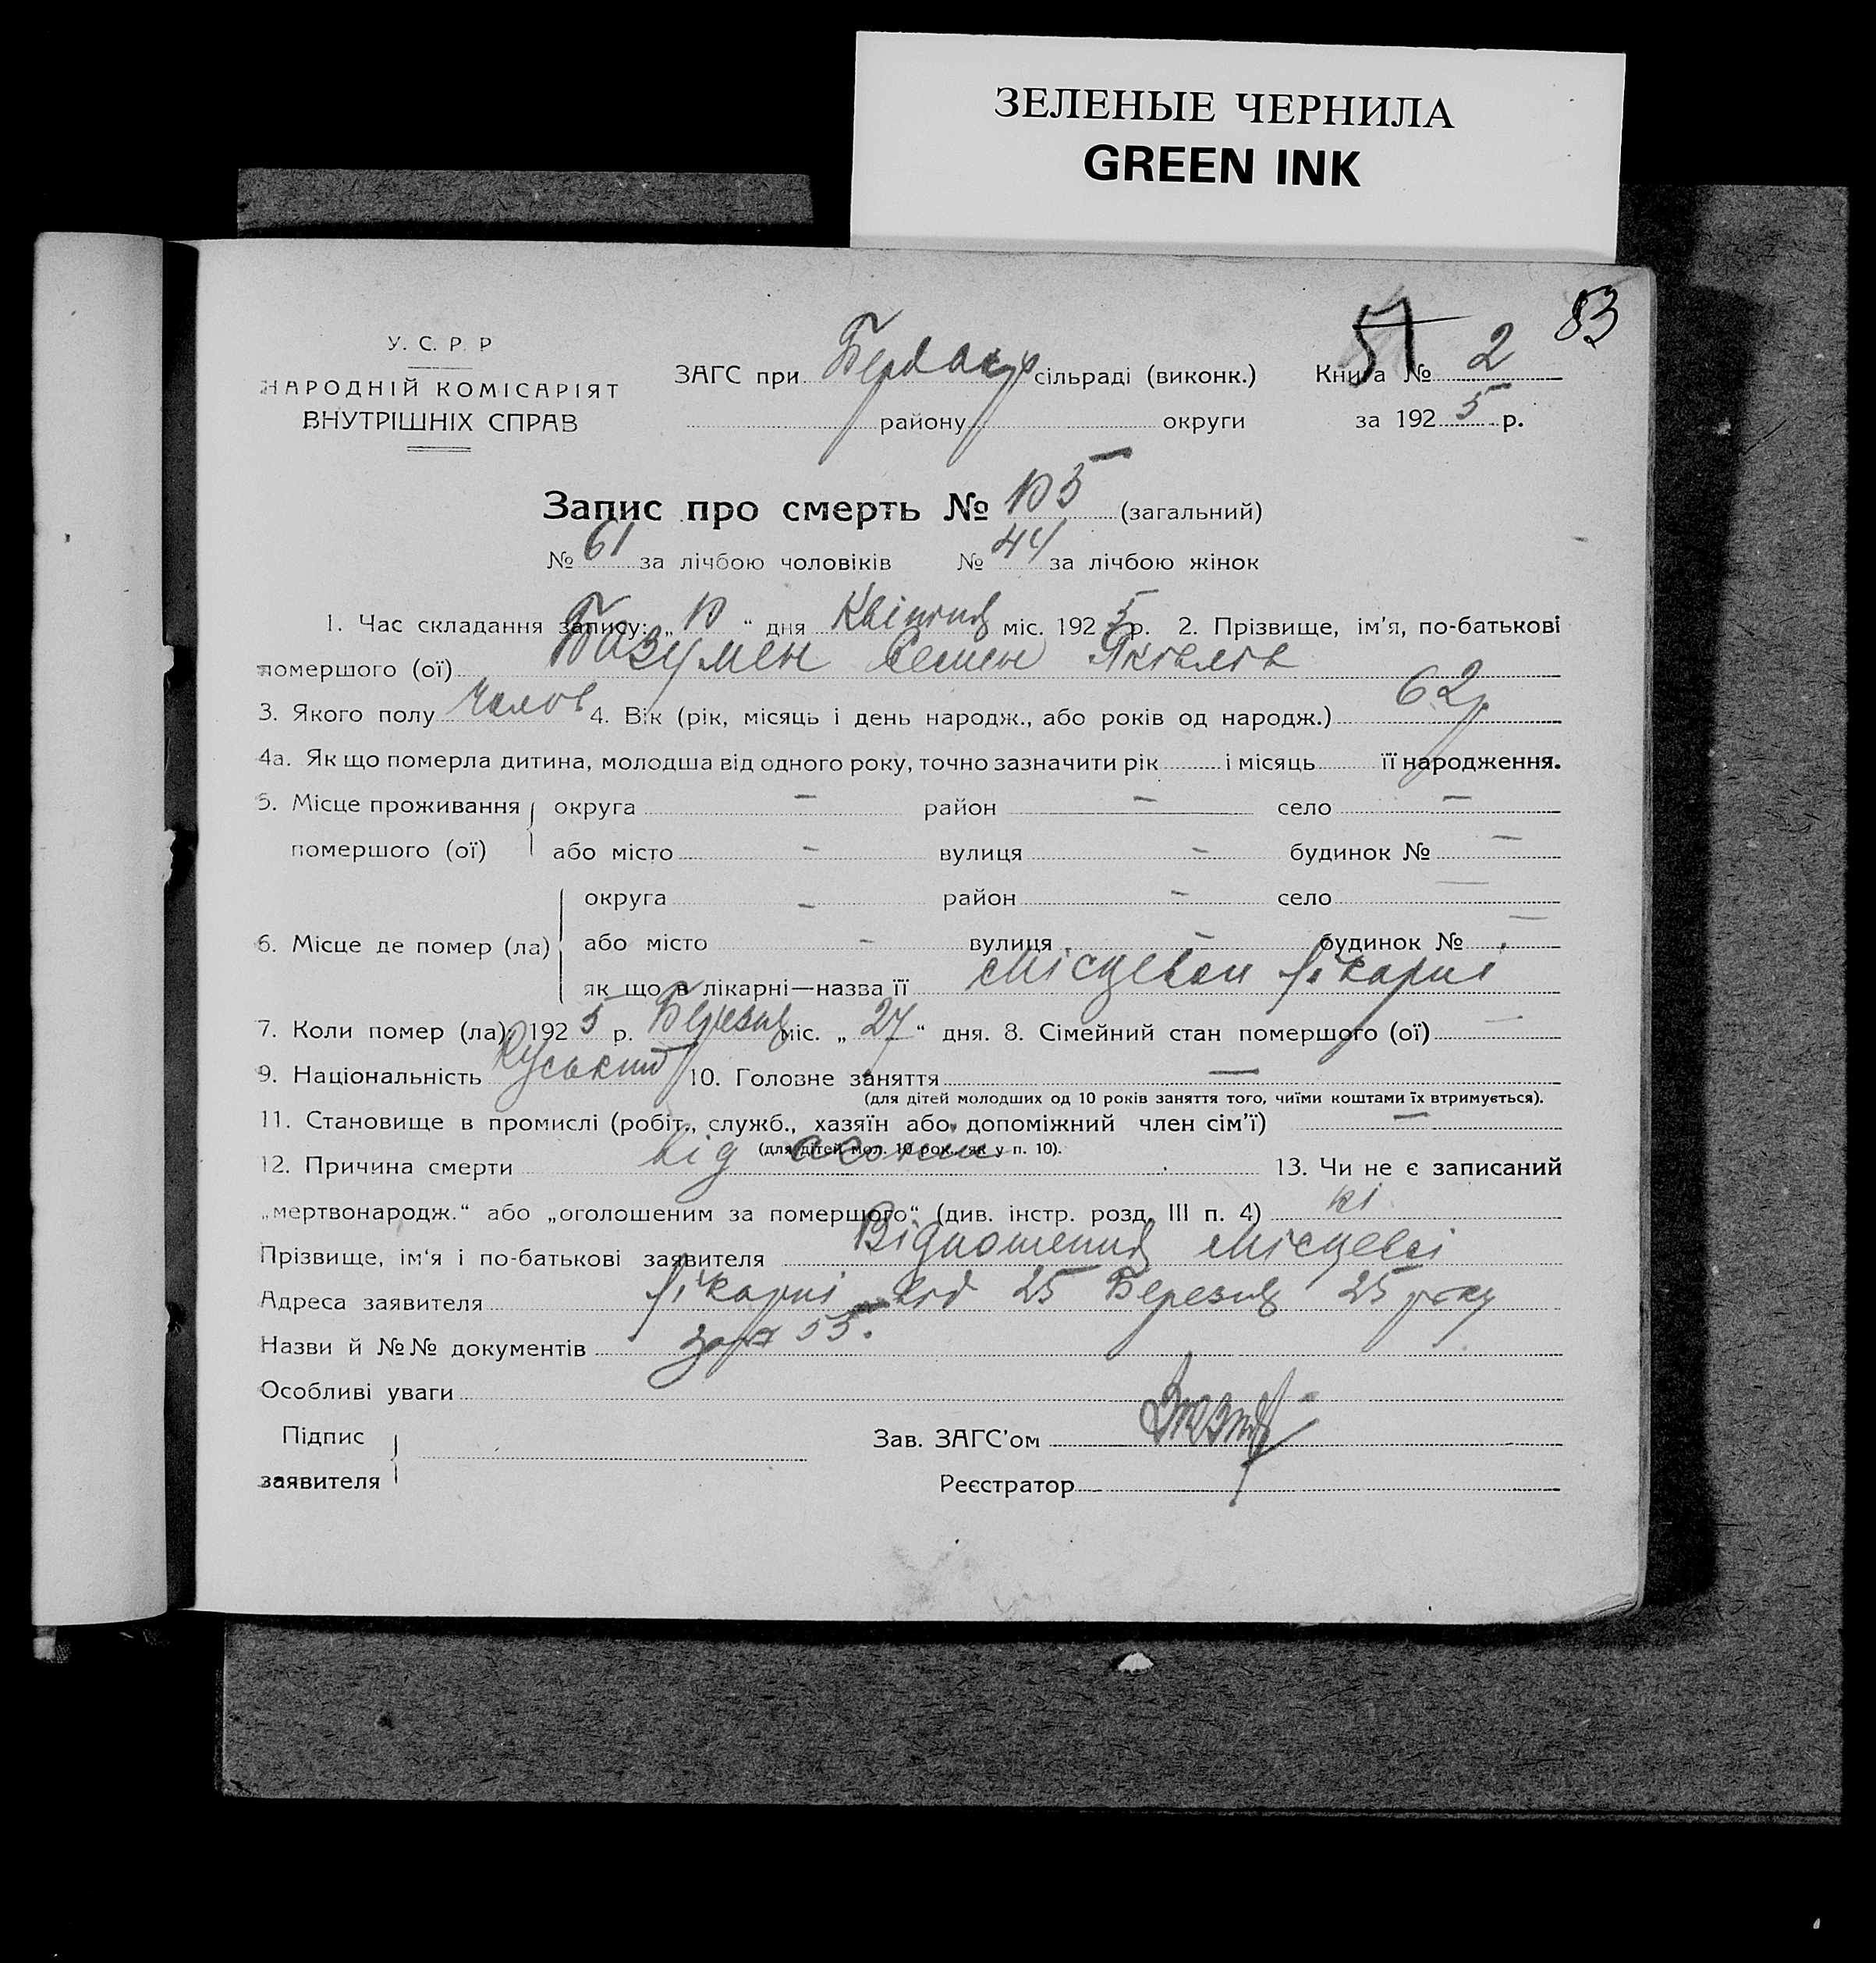 ЗЕЛЕНЫЕ ЧЕРНИЛА
GREEN INK
83
51
У. С. Р. Р
НАРОДНІЙ КОМІСАРІЯТ
ВНУТРІШНІХ СПРАВ
ЗАГС при сільраді (виконк.)
району округи
Книга № 2
за 1925 р.
Запис про смерть № 105 (загальний)
№ 61 за лічбою чоловіків № 44 за лічбою жінок
1. Час складання запису: „10“ дня Квітня міс. 1925 р. 2. Прізвище, ім'я, по-батькові
помершого (ої) Базумен Семен Яковлев
3. Якого полу чолов 4. Вік (рік, місяць і день народж., або років од народж.) 62 р.
4а. Як що померла дитина, молодша від одного року, точно зазначити рік і місяць її народження.
5. Місце проживання округа – район – село –
помершого (ої) або місто – вулиця – будинок № –
округа – район – село –
6. Місце де помер (ла) або місто – вулиця – будинок № –
як що в лікарні—назва її Місцевой лікарні
7. Коли помер (ла): 1925 р. Березня міс. „27“ дня. 8. Сімейний стан помершого (ої) –
9. Національність Руський 10. Головне заняття —
(для дітей молодших од 10 років заняття того, чиїми коштами їх втримується).
11. Становище в промислі (робіт., служб., хазяїн або допоміжний член сім'ї) –
(для дітей мол. 10 рок., як у п. 10).
12. Причина смерти від 13. Чи не є записаний
„мертвонародж.“ або „оголошеним за помершого“ (див. інстр. розд. III п. 4) ні
Прізвище, ім'я і по-батькові заявителя Відношення Місцевої
Адреса заявителя лікарні від 25 Березня 25 року
Назви й №№ документів за № 55.
Особливі уваги
Підпис
заявителя
Зав. ЗАГС'ом
Реєстратор